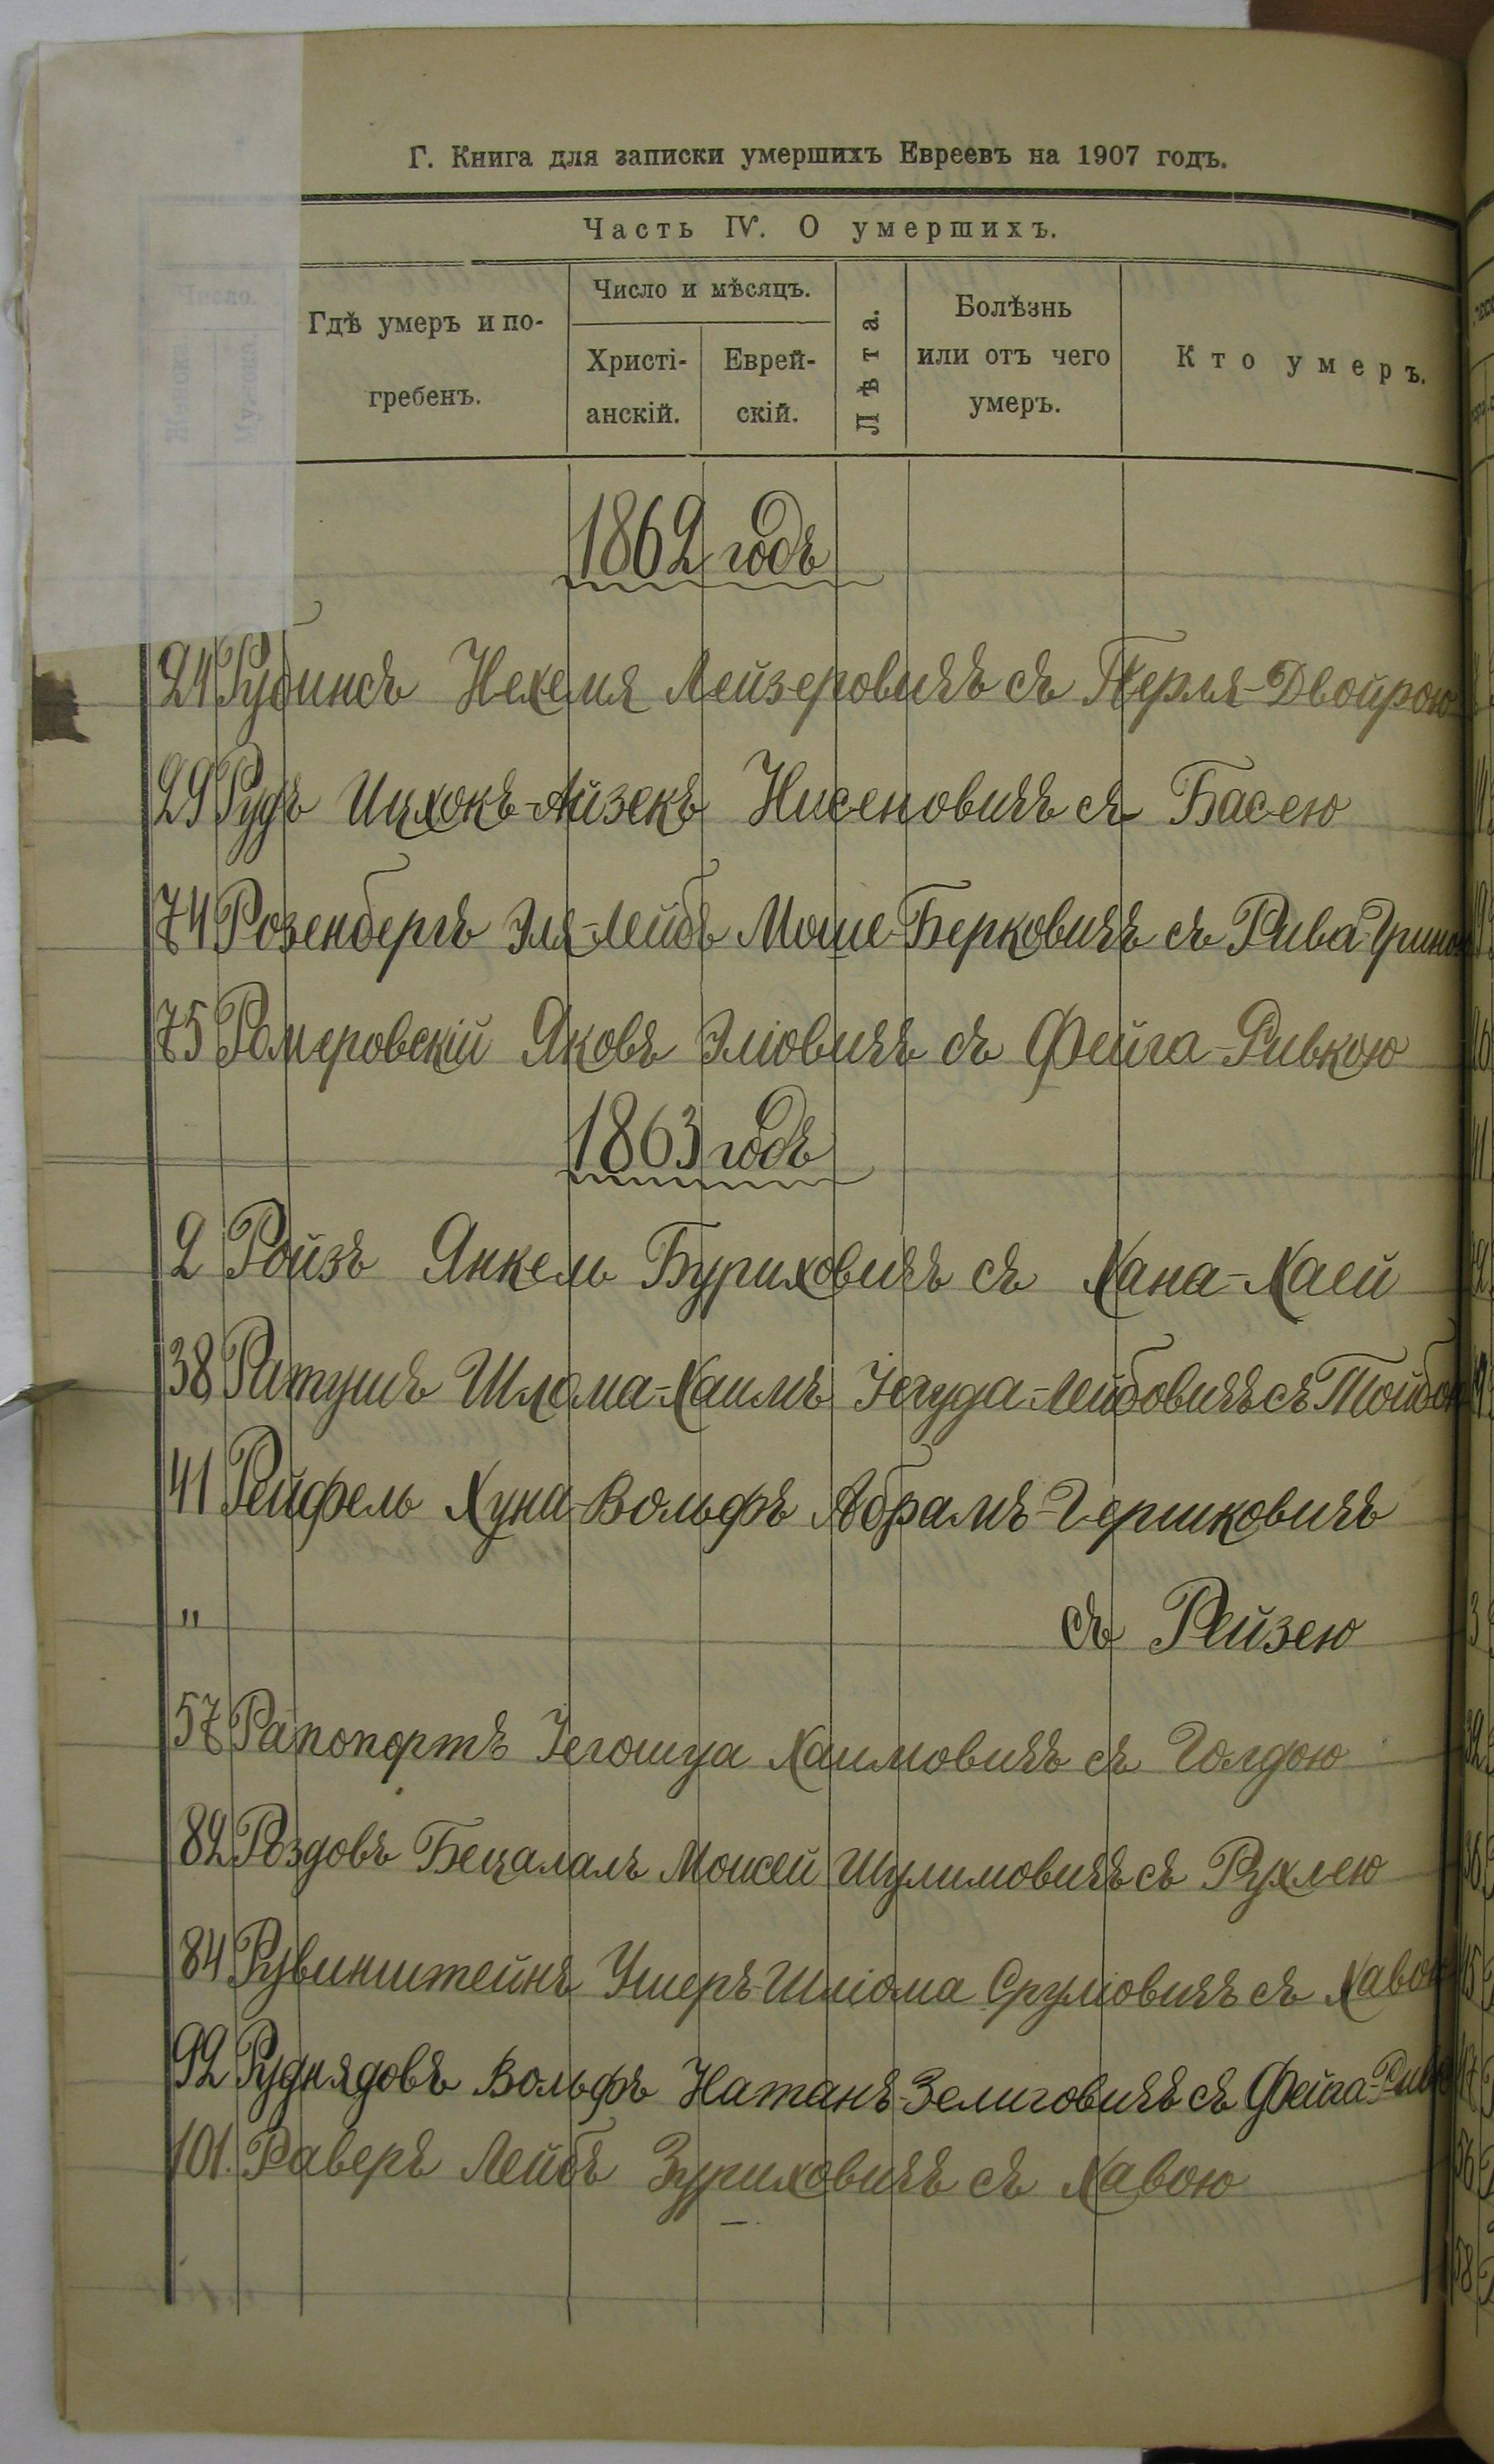 Г. Книга для записки умершихъ Евреевъ на 1907 годъ.
Часть IV. О умершихъ.
Гдѣ умеръ и по-
гребенъ.
Число и мѣсяцъ.
Христі-
анскій.
Еврей-
скій.
Лѣта.
Болѣзнь
или отъ чего
умеръ.
Кто умеръ.
1862 годъ
24 Рубинсъ Нехемя Лейзеровичъ съ Перля-Двойрою
29 Рудъ Ицхокъ-Айзекъ Нисеновичъ съ Басею
74 Розенбергъ Эля-Лейбъ Моше-Берковичъ съ Рива
75 Ромеровскій Яковъ Эліовичъ съ Фейга-Ривкою
1863 годъ
2 Ройзъ Янкель Буриховичъ съ Хана-Хаей
38 Ратушъ Шлема-Хаимъ Іегуда-Лейбовичъ съ Тойбою
41 Рейфель Хуна-Вольфъ Абрамъ-Гершковичъ
" съ Рейзею
57 Рапопортъ Іегошуа Хаимовичъ съ Голдою
82 Роздовъ Бецалалъ Моисей Шулимовичъ съ Рухлею
84 Рувинштейнъ Ушеръ-Шліома Сруліовичъ съ Хавою
92 Руднядовъ Вольфъ Натанъ-Зелиговичъ съ Фейга-
101. Раверъ Лейбъ Зуриховичъ съ Хавою